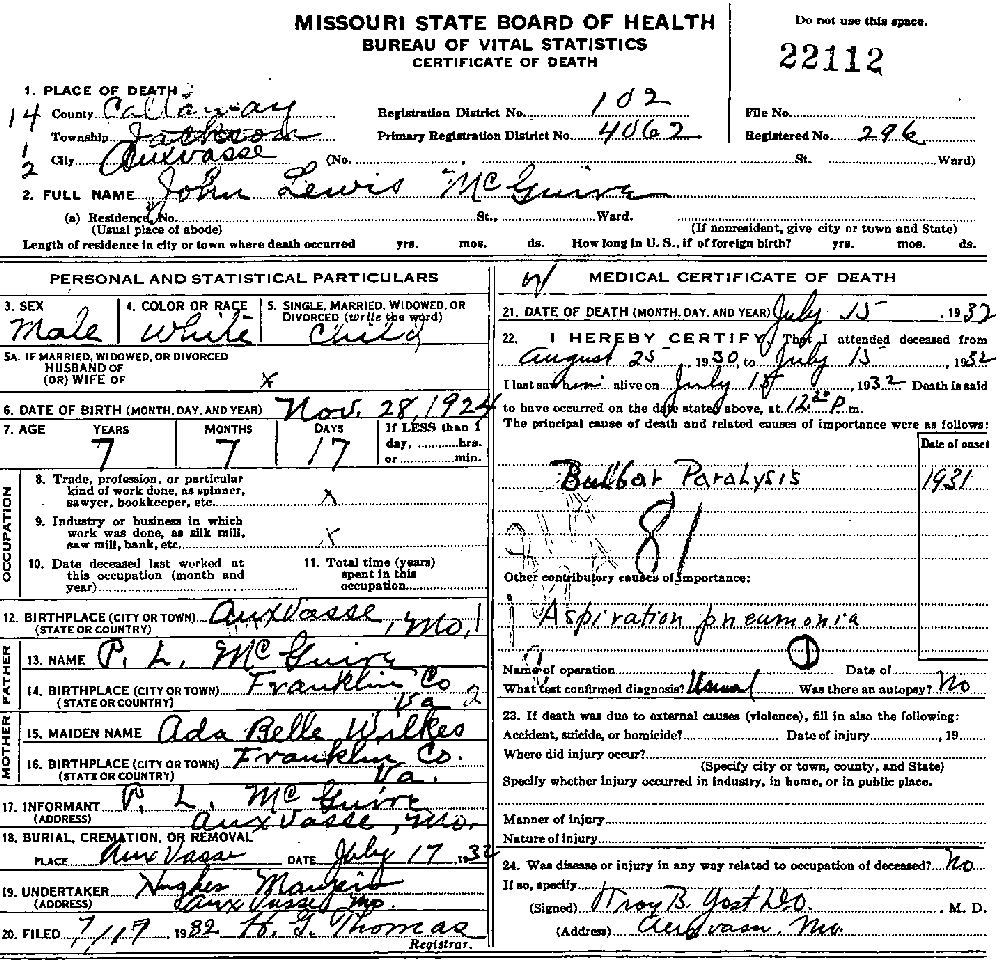 MISSOURI STATE BOARD OF HEALTH
BUREAU OF VITAL STATISTICS
CERTIFICATE OF DEATH
Do not use this space.
22112
1. PLACE OF DEATH
14 County Callaway Registration District No. 102 File No.
Township Jackson Primary Registration District No. 4062 Registered No. 296
1/2 City Auxvasse (No. St. Ward)
2. FULL NAME John Lewis McGuire
(a) Residence, No. St., Ward.
(Usual place of abode) (If nonresident, give city or town and State)
Length of residence in city or town where death occurred yrs. mos. ds. How long in U. S., if of foreign birth? yrs. mos. ds.
PERSONAL AND STATISTICAL PARTICULARS
3. SEX 4. COLOR OR RACE 5. SINGLE, MARRIED, WIDOWED, OR DIVORCED (write the word)
Male White Child
5A. IF MARRIED, WIDOWED, OR DIVORCED
HUSBAND OF
(OR) WIFE OF x
6. DATE OF BIRTH (MONTH, DAY, AND YEAR) Nov. 28, 1924
7. AGE YEARS MONTHS DAYS If LESS than 1
7 7 17 day, hrs.
or min.
OCCUPATION
8. Trade, profession, or particular
kind of work done, as spinner,
sawyer, bookkeeper, etc. x
9. Industry or business in which
work was done, as silk mill,
saw mill, bank, etc. x
10. Date deceased last worked at
this occupation (month and
year)
11. Total time (years)
spent in this
occupation
12. BIRTHPLACE (CITY OR TOWN) Auxvasse, Mo. 1
(STATE OR COUNTRY)
FATHER
13. NAME P. L. McGuire
14. BIRTHPLACE (CITY OR TOWN) Franklin Co
(STATE OR COUNTRY) Va 2
MOTHER
15. MAIDEN NAME Ada Belle Wilkes
16. BIRTHPLACE (CITY OR TOWN) Franklin Co.
(STATE OR COUNTRY) Va.
17. INFORMANT P. L. McGuire
(ADDRESS) Auxvasse, Mo.
18. BURIAL, CREMATION, OR REMOVAL
PLACE Auxvasse DATE July 17 1932
19. UNDERTAKER Hughes
(ADDRESS) Auxvasse Mo.
20. FILED 7/17 1932 Thomas
Registrar.
MEDICAL CERTIFICATE OF DEATH
21. DATE OF DEATH (MONTH, DAY, AND YEAR) July 15, 1932
22. I HEREBY CERTIFY, That I attended deceased from
August 25, 1930, to July 15, 1932
I last saw him alive on July 15, 1932 Death is said
to have occurred on the date stated above, at p. m.
The principal cause of death and related causes of importance were as follows:
Date of onset
Bulbar Paralysis 1931
81
Other contributory causes of importance:
Aspiration pneumonia
1
Name of operation Date of
What test confirmed diagnosis? Usual Was there an autopsy? No
23. If death was due to external causes (violence), fill in also the following:
Accident, suicide, or homicide? Date of injury , 19
Where did injury occur?
(Specify city or town, county, and State)
Specify whether injury occurred in industry, in home, or in public place.
Manner of injury
Nature of injury
24. Was disease or injury in any way related to occupation of deceased? No
If so, specify
(Signed) Troy B. Yost DO , M. D.
(Address) Auxvasse Mo.